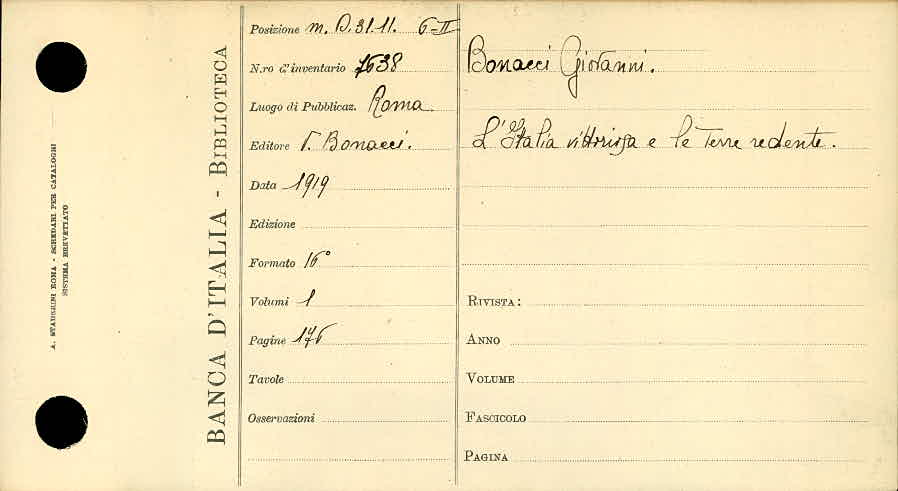 A. STADERINI ROMA - SCHEDARI PER CATALOGHI
SISTEMA BREVETTATO
BANCA D'ITALIA - BIBLIOTECA
Posizione m. D. 31.11. 6-II
N.ro d'inventario 7638
Luogo di Pubblicaz. Roma
Editore Bonacci.
Data 1919
Edizione
Formato 16°
Volumi 1
Pagine 176
Tavole
Osservazioni
Bonacci Giovanni.
L'Italia vittoriosa e le Terre redente.
RIVISTA:
ANNO
VOLUME
FASCICOLO
PAGINA